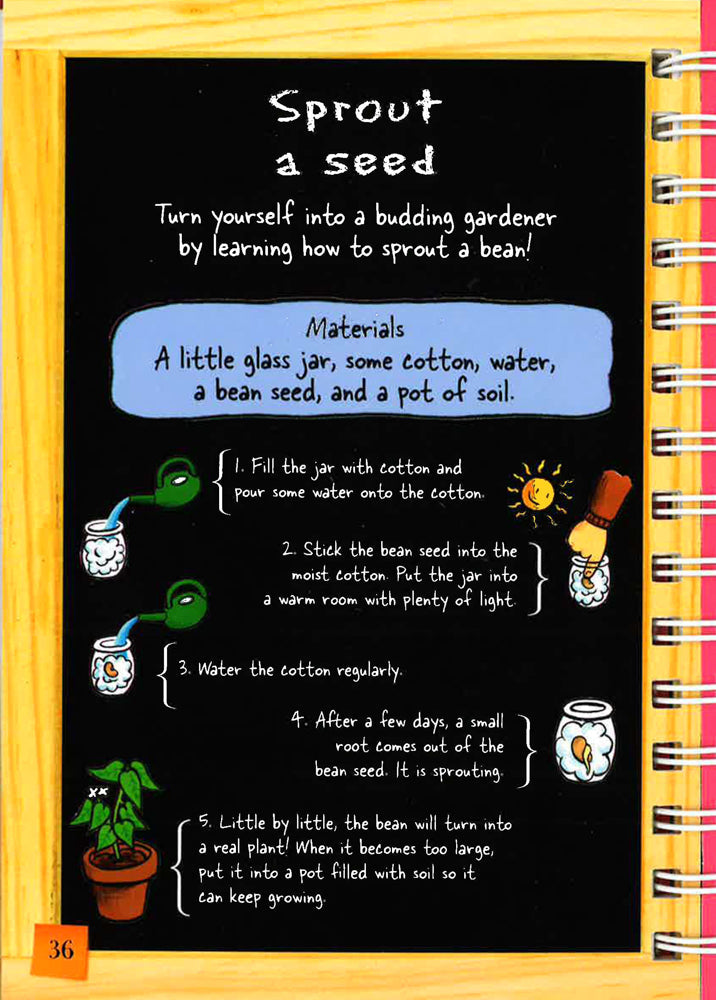 Sprout
a seed
Turn yourself into a budding gardener
by learning how to sprout a bean!
Materials
A little glass jar, some cotton, water,
a bean seed, and a pot of soil.
1. Fill the jar with cotton and
pour some water onto the cotton.
2. Stick the bean seed into the
moist cotton. Put the jar into
a warm room with plenty of light.
3. Water the cotton regularly.
4. After a few days, a small
root comes out of the
bean seed. It is sprouting.
5. Little by little, the bean will turn into
a real plant! When it becomes too large,
put it into a pot filled with soil so it
can keep growing.
36